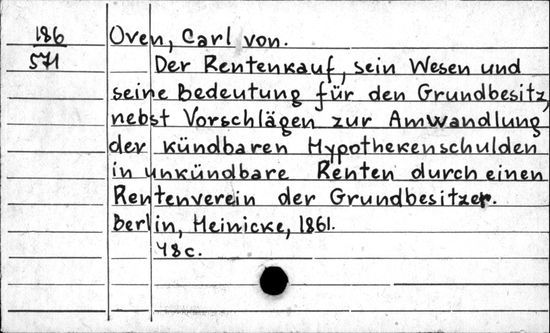 186
571
Oven, Carl von.
Der Rentenkauf, sein Wesen und
seine Bedeutung für den Grundbesitz,
nebst Vorschlägen zur Amwandlung
der kündbaren Hypothekenschulden
in unkündbare Renten durch einen
Rentenverein der Grundbesitzer.
Berlin, Heinicke, 1861.
48c.